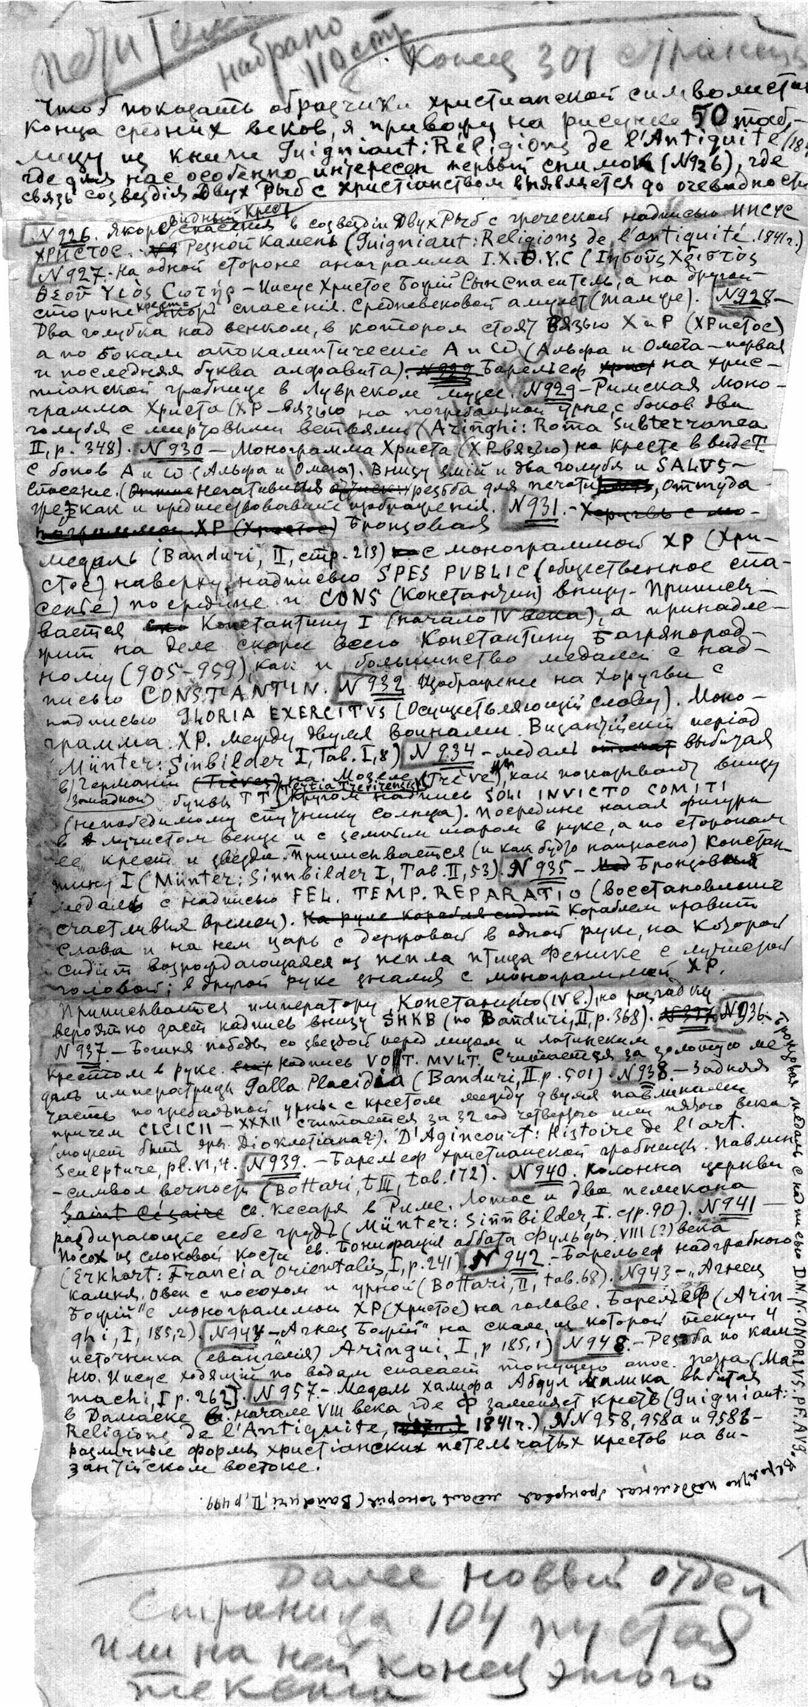 набрано
Конец 301 страницы
Чтоб показать образчики христианской символистики
конца средних веков, я привожу на рисунке 50 таб-
лицу из книги Guigniaut: Religions de l'Antiquité
где для нас особенно интересен первый снимок (N926), где
связь созвездія Двух Рыб с христіанством выявляется до очевидности
N 926. Якорь спасенія в созвездіи Двух Рыб с греческой надписью ИИСУС
ХРИСТОС. Резной камень (Guigniaut: Religions de l'antiquité. 1841 г.)
N 927. На одной стороне анаграмма I.X.Θ.Y.C
Θεοῦ Υἱὸς Σωτὴρ – Иисус Христос Божій Сын Спаситель, а на другой
стороне якорь спасенія. Средневековой амулет. N 928 –
Два голубка над венком, в котором стоят вязью Х и Р (ХРистос)
а по бокам апокалиптическіе А и ω (Альфа и Омега – первая
и последняя буква алфавита). Барельеф на хрис-
тіанской гробнице в Луврском музее. N 929 – Римская моно-
грамма Христа (ХР – вязью на погребальной урне, с боков два
голубя с миртовыми ветвями (Aringhi: Roma Subterranea
II, p. 348). N 930 – Монограмма Христа (ХР вязью) на кресте в виде Т
с боков А и ω (Альфа и Омега). Внизу змій и два голубя и SALVS –
спасение. резьба для печати, оттуда
же как и предшествовавшіе изображенія. N 931. –
Бронзовая
медаль (Banduri, II, стр. 213) с монограммой ХР (Хри-
стос) наверху, надписью SPES PVBLIC (общественное спа-
сеніе) посредине и CONS (Константин) внизу. Приписы-
вается Константину I (начало IV века), а принадле-
жит на деле скорее всего Константину Багрянород-
ному (905–959), как и большинство медалей с над-
писью CONSTANTIN. N 932 Изображение на хоругви с
надписью GLORIA EXERCITVS (Осуществляющій славу). Моно-
грамма ХР. между двумя воинами. Византійскій період
Münter: Sinbilder I, Tab. I, 8) N 934 – медаль выбитая
в Германіи (Trève), как показывают внизу
буквы TT кругом надпись SOLI INVICTO COMITI
(непобедимому спутнику солнца). Посредине нагая фигура
в лучистом венце и с земным шаром в руке, а по сторонам
ее крест и звезда. Приписывается (и как будто напрасно) Констан-
тину I (Münter: Sinnbilder I, Tab. II, 53). N 935 – Бронзовая
медаль с надписью FEL. TEMP. REPARATIO (восстановленіе
счастливых времен). Кораблем правит
Слава и на нем царь с державой в одной руке, на которой
сидит возрождающаяся из пепла птица Феникс с лучистой
головой; в другой руке знамя с монограммой ХР.
Приписывается императору Констанцію (IV в.), но разгадку
вероятно дает надпись внизу SHKB (по Banduri, II, p. 368). N 936 –
N 937. – Богиня победы со звездой перед лицом и латинским
крестом в руке. Надпись VOT. MVLT. Считается за золотую ме-
даль императрицы Galla Placidia (Banduri, II p. 501) N 938. – Задняя
часть погребальной урны с крестом между двумя павлинами
причем CLCICII – XXXII считается за 32 год четвертого или пятого века
(может быть эры Діоклетіана?). D'Agincourt: Histoire de l'art.
Sculpture, pl. VI, 4. N 939. – Барельеф христіанской гробницы. Павлин
– символ вечности (Bottari, t III, tab. 172). N 940. Колонна церкви
Saint Césaire св. Кесаря в Риме. Лотос и два пеликана
раздирающіе себе грудь (Münter: Sinnbilder, I. стр. 90). N 941 –
Посох из слоновой кости св. Бонифація аббата Фульды. VIII (?) века
(Erkhart: Francia Orientalis I, p. 241) N 942 – Барельеф надгробного
камня. Овен с посохом и урной (Bottari, II, tab. 68). N 943 – "Агнец
Божій" с монограммой ХР (Христос) на голове. Барельеф (Arin-
ghi, I, 185, 2). N 944 – "Агнец Божій" на скале, из которой текут 4
источника (евангелія) Aringui, I, p 185, 1) N 948. – Резьба по кам-
ню. Иисус ходящій по водам спасает тонущего апос. Петра (Ma-
machi, I p. 262). N 957. – Медаль халифа Абдул Малика выбитая
в Дамаске в начале VIII века где Ф заменяет крест (Guigniaut:
Religions de l'Antiquite, 1841 г.), NN 958, 958а и 958b –
различные формы христіанских петельчатых крестов на ви-
зантійском востоке.
Бронзовая медаль с надписью D.N.N. ONORIVS. PF. AVG.
Вероятно поддельная бронзовая медаль Гонорія (Banduri, II, p 499.
Далее новый отдел
Страница 104 пустая
или на ней конец этого
текста